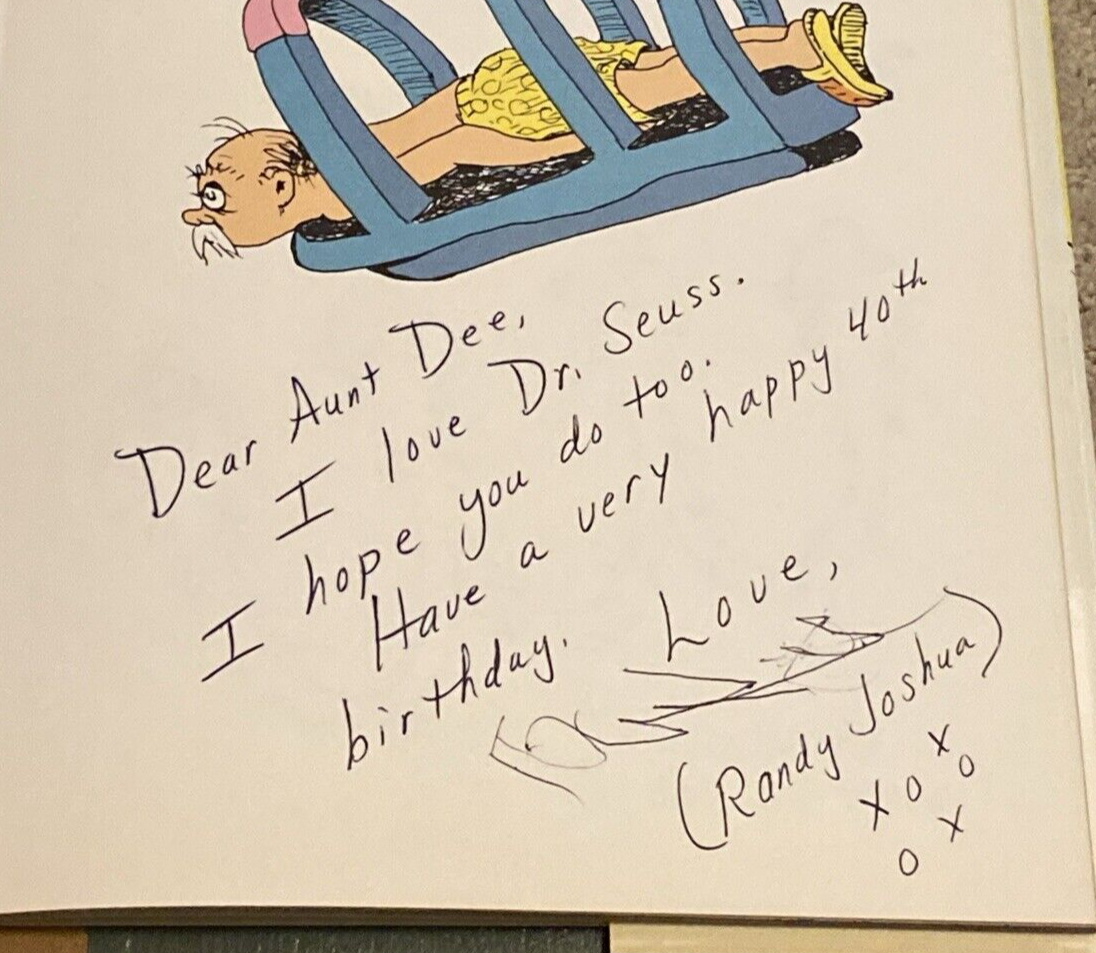 Dear Aunt Dee,
I love Dr. Seuss.
I hope you do too.
Have a very happy 40th
birthday.
Love,
(Randy Joshua)
x
x o o
o x